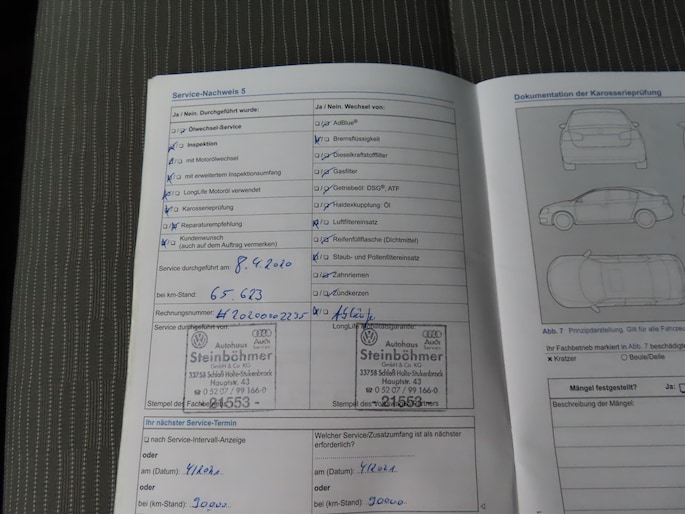 Service-Nachweis 5
Ja / Nein. Durchgeführt wurde:
Ölwechsel-Service
Inspektion
mit Motorölwechsel
mit erweitertem Inspektionsumfang
LongLife Motoröl verwendet
Karosserieprüfung
Reparaturempfehlung
Kundenwunsch
(auch auf dem Auftrag vermerken)
Service durchgeführt am: 8.4.2020
bei km-Stand: 65.623
Rechnungsnummer:
Service durchgeführt von:
Autohaus
Audi
Service
Steinböhmer
GmbH & Co. KG
33758 Schloß Holte-Stukenbrock
Hauptstr. 43
☎ 0 52 07 / 99 166-0
- 21553 -
Stempel des
Ja / Nein. Wechsel von:
AdBlue®
Bremsflüssigkeit
Dieselkraftstofffilter
Gasfilter
Getriebeöl: DSG®, ATF
Haldexkupplung: Öl
Luftfiltereinsatz
Reifenfüllflasche (Dichtmittel)
Staub- und Pollenfiltereinsatz
Zahnriemen
Zündkerzen
LongLife Mobilitätsgarantie:
Autohaus
Audi
Service
Steinböhmer
GmbH & Co. KG
33758 Schloß Holte-Stukenbrock
Hauptstr. 43
☎ 0 52 07 / 99 166-0
- 21553 -
Stempel des
Ihr nächster Service-Termin
nach Service-Intervall-Anzeige
oder
am (Datum): 4/2021
oder
bei (km-Stand): 90000
Welcher Service/Zusatzumfang ist als nächster
erforderlich?
oder
am (Datum): 4/2021
oder
bei (km-Stand): 90000
Dokumentation der Karosserieprüfung
Abb. 7 Prinzipdarstellung. Gilt für alle
Ihr Fachbetrieb markiert in Abb. 7
× Kratzer
○ Beule/Delle
Mängel festgestellt? Ja:
Beschreibung der Mängel: